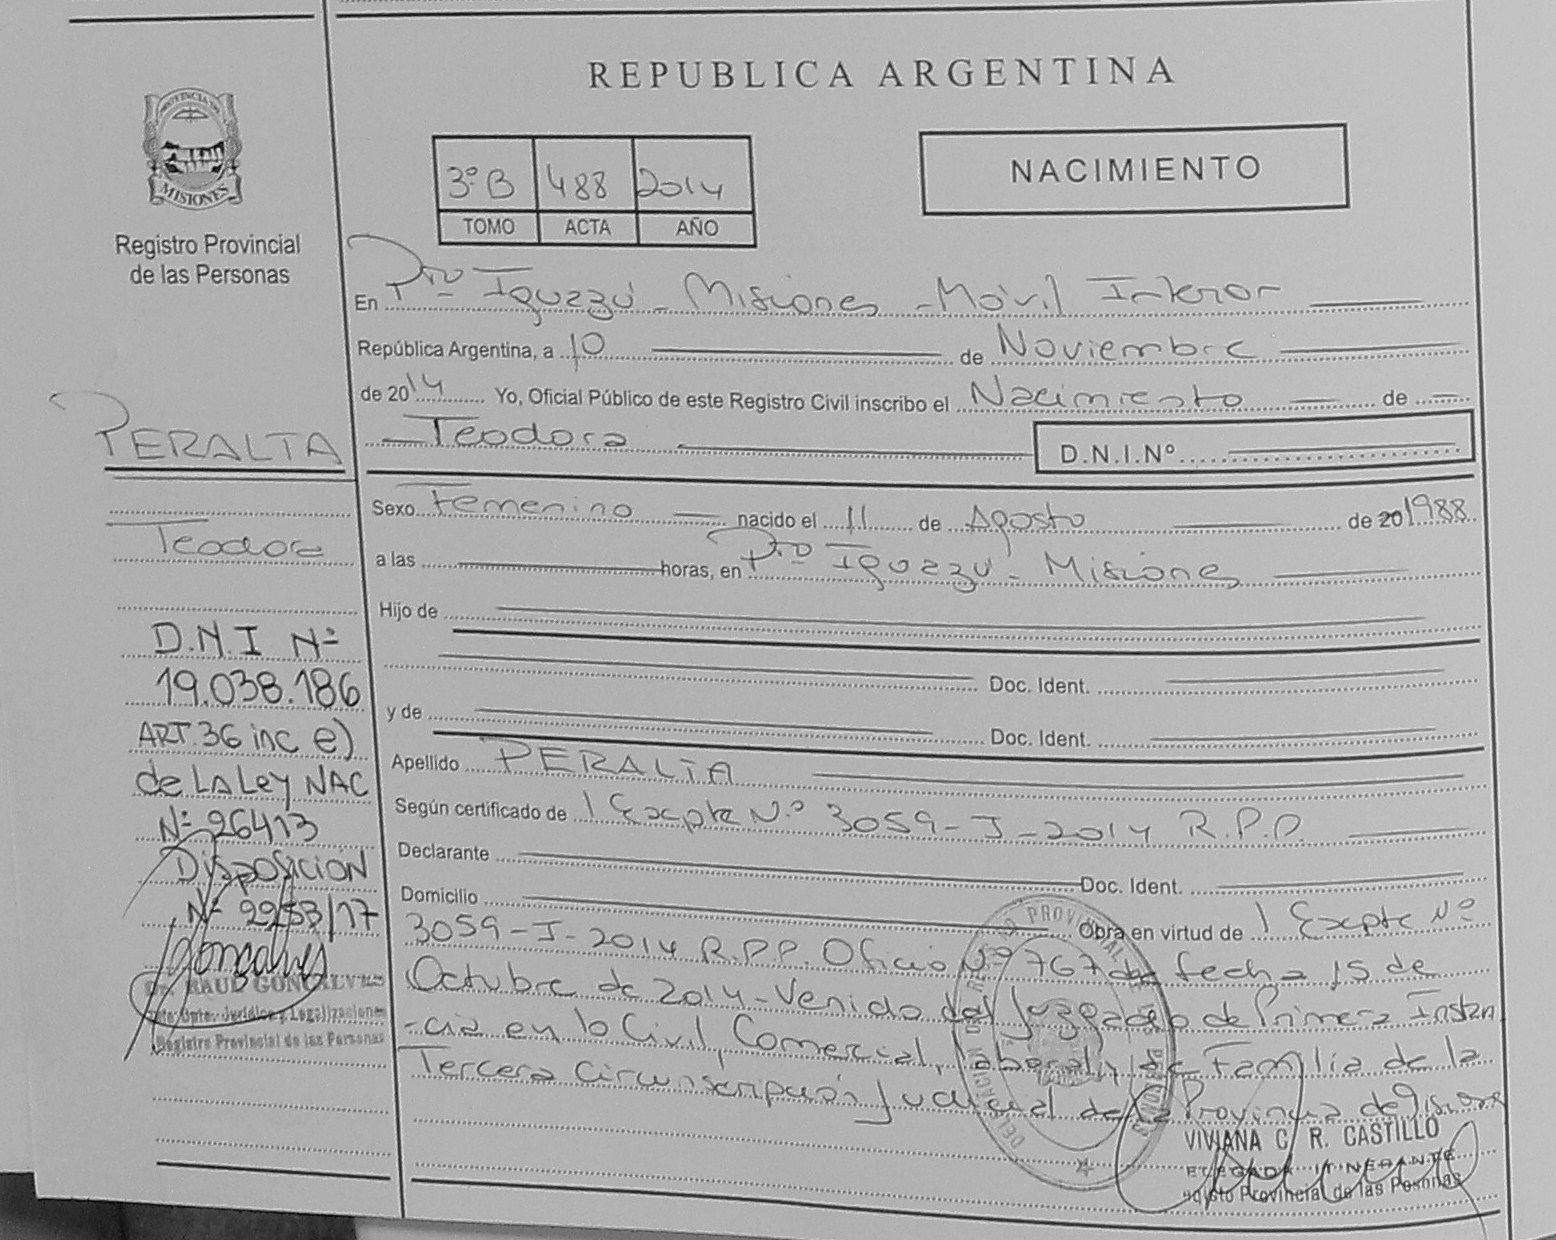 REPUBLICA ARGENTINA
PROVINCIA
MISIONES
Registro Provincial
de las Personas
3º B 488 2014
TOMO ACTA AÑO
NACIMIENTO
En Pto Iguazú - Misiones - Móvil Interior
República Argentina, a 10 de Noviembre
de 2014 Yo, Oficial Público de este Registro Civil inscribo el Nacimiento de
Teodora D.N.I.Nº
Sexo Femenino nacido el 11 de Agosto de 20 1988
a las horas, en Pto Iguazú - Misiones
Hijo de
Doc. Ident.
y de
Doc. Ident.
Apellido PERALTA
Según certificado de 1 Expte Nº 3059-J-2014 R.P.P.
Declarante Doc. Ident.
Domicilio Obra en virtud de 1 Expte Nº
3059-J-2014 R.P.P. Oficio Nº 767 de fecha 15 de
Octubre de 2014 - Venido del Juzgado de Primera Instan
-cia en lo Civil, Comercial, laboral y de Familia de la
Tercera Circunscripción Judicial de la Provincia de Misiones
VIVIANA C. R. CASTILLO
DELEGADA ITINERANTE
Registo Provincial de las Personas
PERALTA
Teodora
D.N.I Nº
19.038.186
ART.36 inc e)
de LA Ley NAC
Nº 26413
Disposición
Nº 2253/17
Gonçalves
Dr. RAUL GONCALVES
Dpto. Jurídico y Legalizaciones
Registro Provincial de las Personas